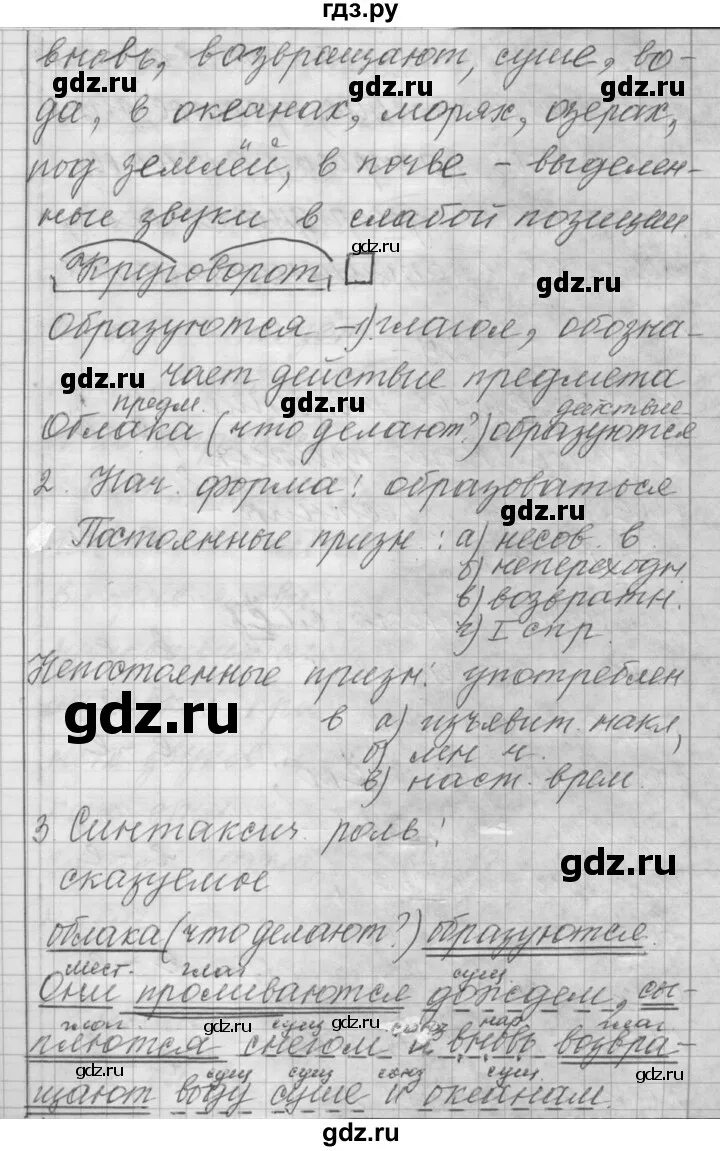 гдз.ру
вновь, возвращают, суше, во-
gdz.ru gdz.ru
да, в океанах, морях, озерах,
под землёй, в почве – выделен-
ные звуки в слабой позиции.
gdz.ru
Круговорот
gdz.ru
Образуются – 1) глагол, обозна-
gdz.ru чает действие предмета
gdz.ru
предм. действие
Облака (что делают?) образуются
2. Нач. форма: образоваться
gdz.ru
Постоянные призн.: а) несов. в.
б) непереходн.
в) возвратн.
г) I спр.
Непостоянные призн: употреблен
gdz.ru
в а) изъявит. накл,
б) мн. ч.
в) наст. врем.
3 Синтаксич. роль:
gdz.ru
сказуемое
облака (что делают?) образуются.
мест. глаг сущ
Они проливаются дождем, сы-
gdz.ru gdz.ru
глаг сущ союз нар глаг
плются снегом и вновь возвра-
gdz.ru gdz.ru gdz.ru
сущ сущ союз сущ
щают воду суше и океанам.
gdz.ru